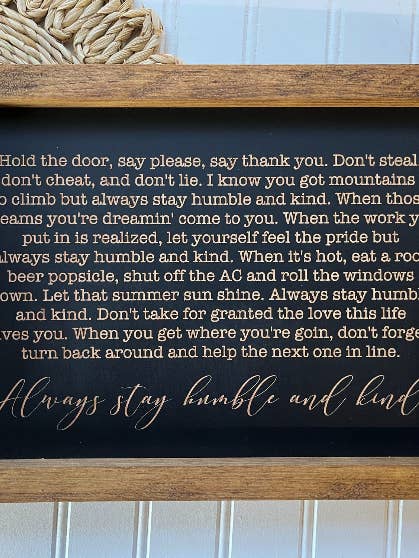 Hold the door, say please, say thank you. Don't steal
don't cheat, and don't lie. I know you got mountains
o climb but always stay humble and kind. When thos
eams you're dreamin' come to you. When the work y
put in is realized, let yourself feel the pride but
always stay humble and kind. When it's hot, eat a roo
beer popsicle, shut off the AC and roll the windows
own. Let that summer sun shine. Always stay humbl
and kind. Don't take for granted the love this life
ves you. When you get where you're goin, don't forge
turn back around and help the next one in line.
Always stay humble and kind